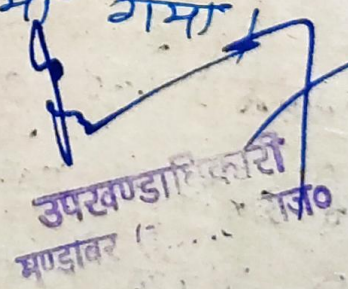 गया
उपखण्डाधिकारी
मण्डावर राज०